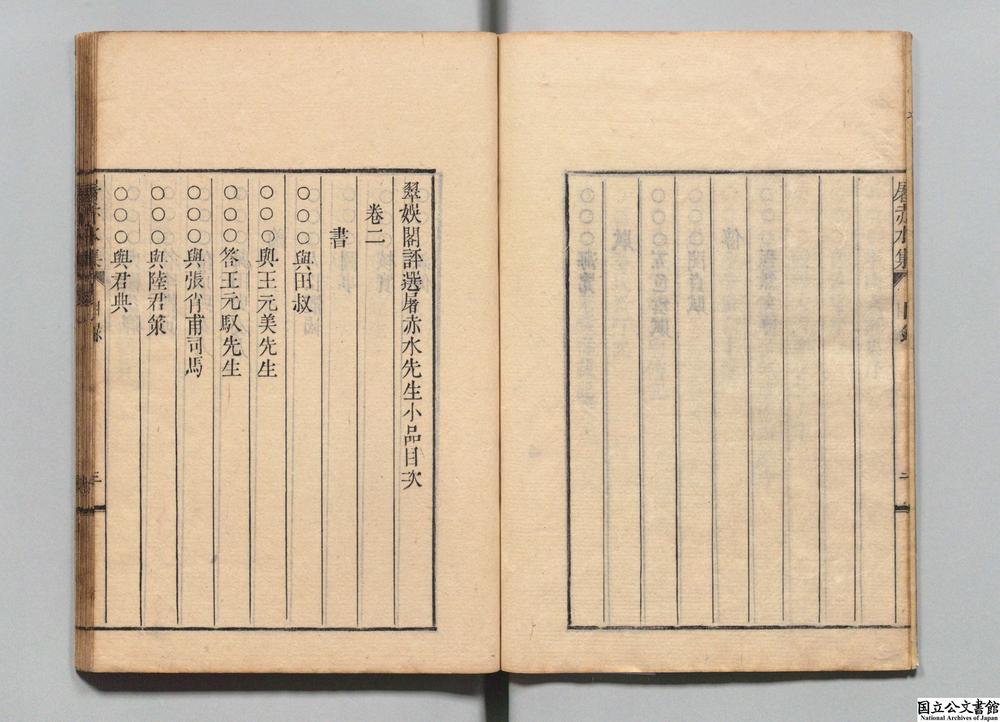 屠赤水集 目錄 二
翠娛閣評選屠赤水先生小品目次
卷二
書
○○○與田叔
○○○與王元美先生
○○○答王元馭先生
○○○與張肖甫司馬
○○○與陸君策
○○○與君典
屠赤水集 目錄 三
国立公文書館
National Archives of Japan